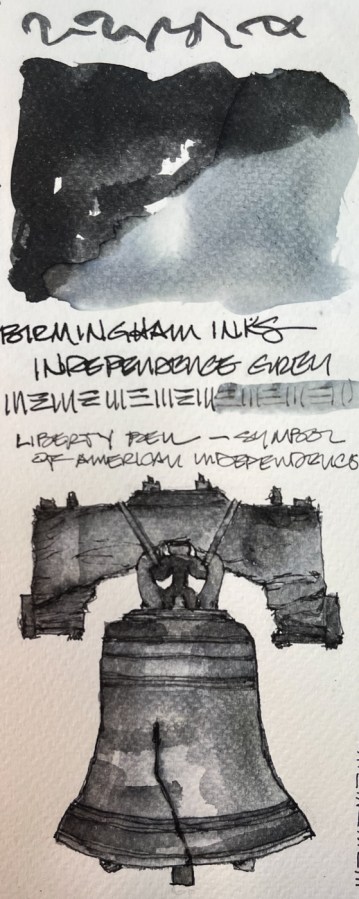 BIRMINGHAM INKS
INDEPENDENCE GREY
LIBERTY BELL — SYMBOL
OF AMERICAN INDEPENDENCE